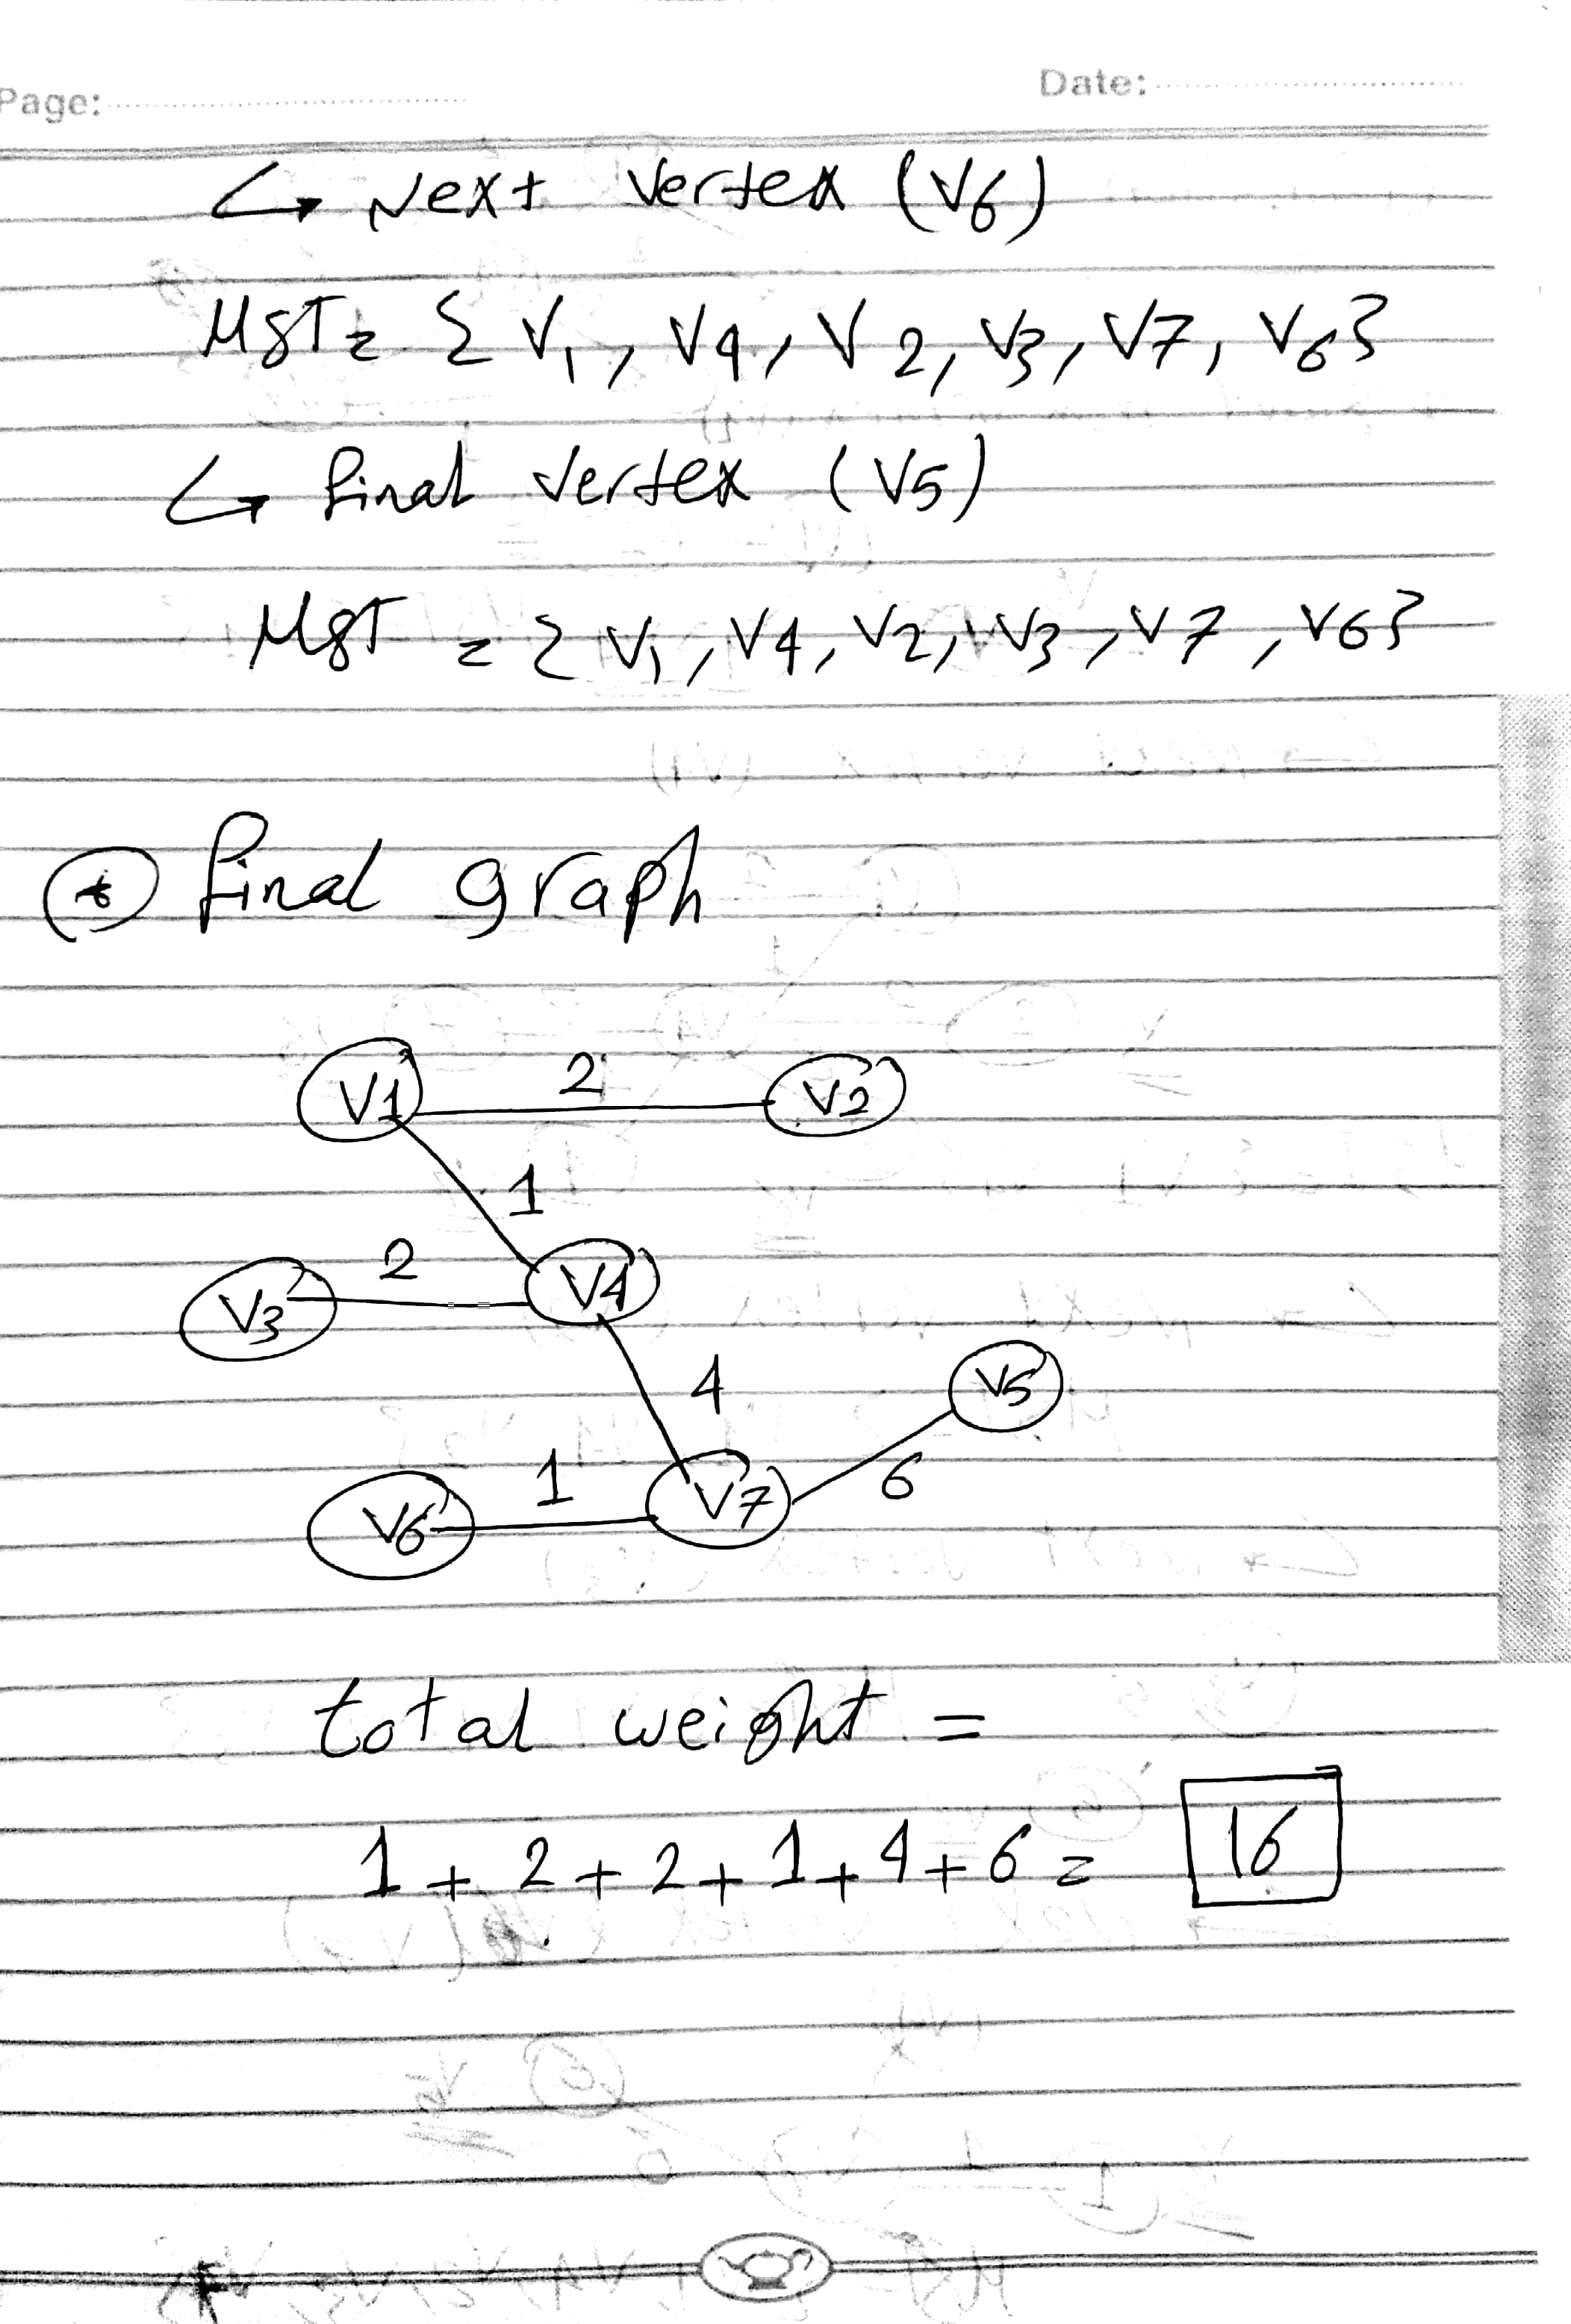 Page:
Date:
↳ Next Vertex (V6)
MST = { V1, V4, V2, V3, V7, V6}
↳ final Vertex (V5)
MST = { V1, V4, V2, V3, V7, V6}
* final graph
V1 2 V2
1
V3 2 V4
4 V5
V6 1 V7 6
total weight =
1 + 2 + 2 + 1 + 4 + 6 = 16